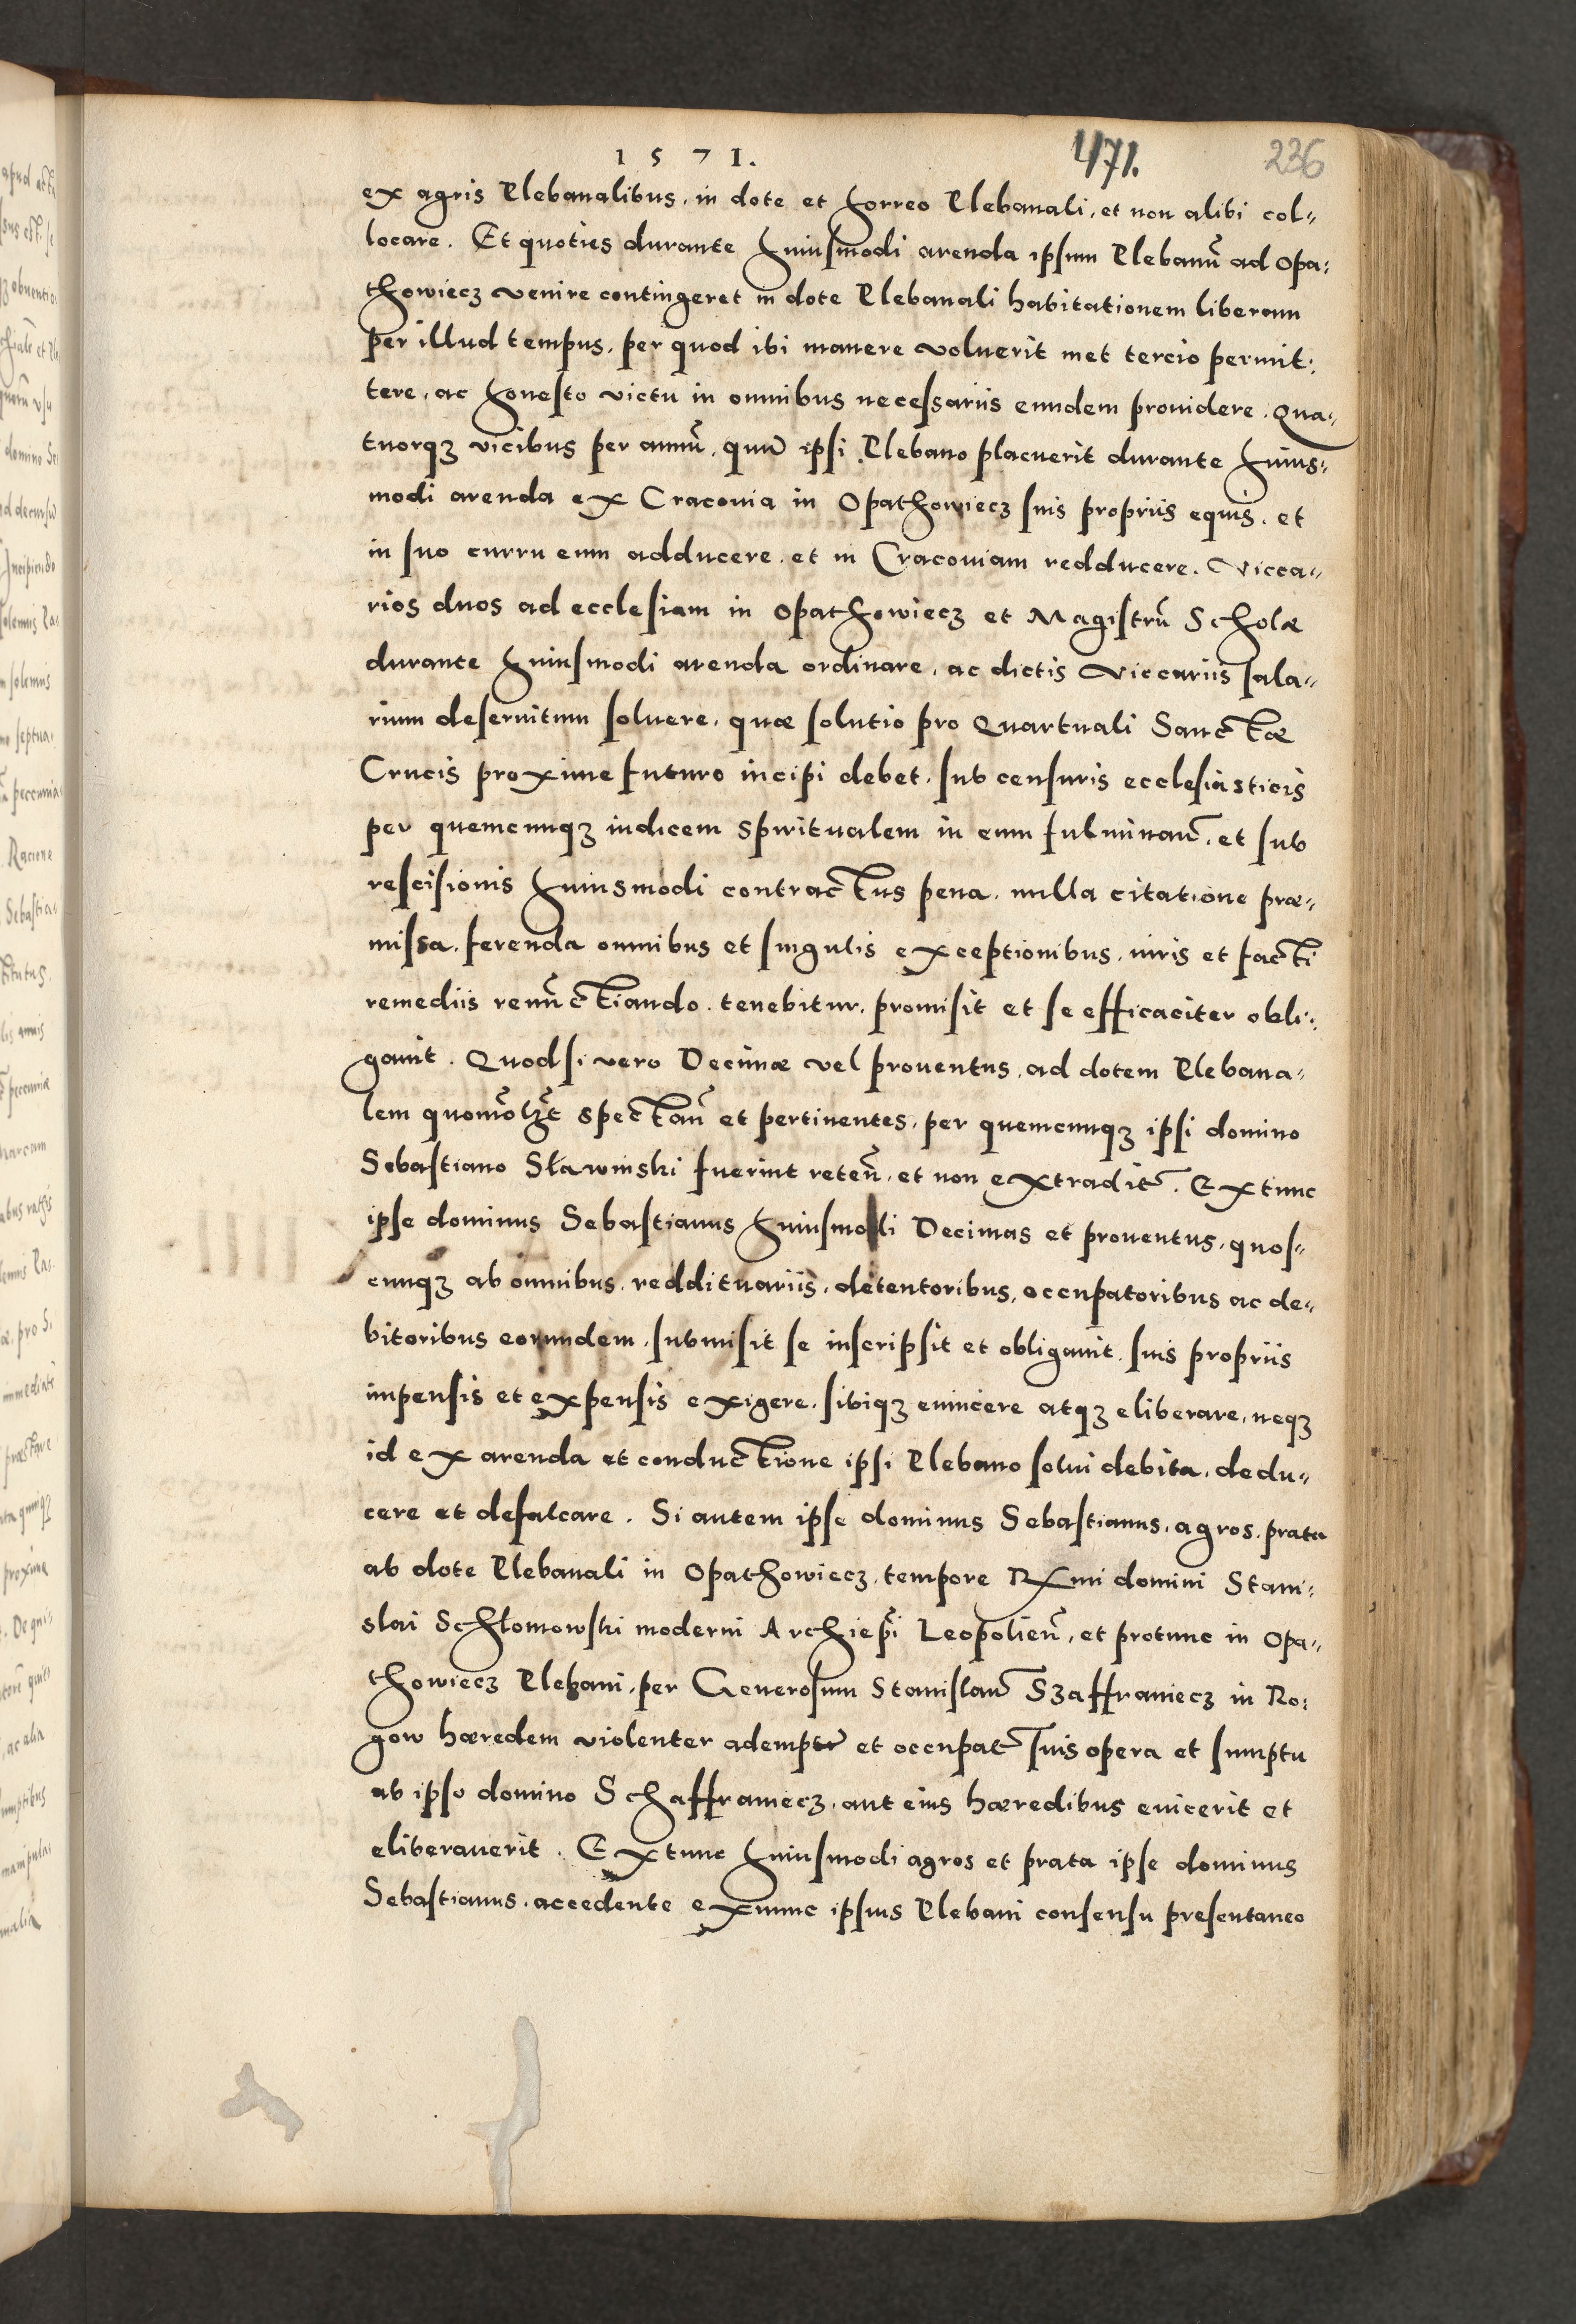 1571.
471.
236
ex agris Plebanalibus, in dote et horreo Plebanali, et non alibi col-
locare. Et quoties durante huiusmodi arenda ipsum Plebanū ad Opa-
thowiecz venire contingeret in dote Plebanali habitationem liberam
per illud tempus, per quod ibi manere voluerit met tercio permit-
tere, ac honesto victu in omnibus necessariis eundem prouidere. Qua-
tuorqȝ vicibus per annū, qum̄ ipsi Plebano placuerit durante huius-
modi arenda ex Cracouia in Opathowiecz suis propriis equis, et
in suo curru eum adducere, et in Cracouiam redducere. Vicca-
rios duos ad ecclesiam in Opathowiecz et Magistrū Scholæ
durante huiusmodi arenda ordinare, ac dictis Viccariis sala-
rium deseruitum soluere, quæ solutio pro Quartuali Sanctæ
Crucis proxime futuro incipi debet, sub censuris ecclesiasticis
per quemcunqȝ iudicem spiritualem in eum fulminan̄, et sub
rescisionis huiusmodi contractus pena, nulla citatione præ-
missa, ferenda omnibus et singulis exceptionibus, iuris et facti
remediis renūctiando, tenebitur, promisit et se efficaciter obli-
gauit. Quod si vero Decimæ vel prouentus, ad dotem Plebana-
lem quomōlȝt spectan̄ et pertinentes, per quemcunqȝ ipsi domino
Sebastiano Sławinski fuerint reten̄, et non extradit̄. Extunc
ipse dominus Sebastianus huiusmodi Decimas et prouentus, quos-
cunqȝ ab omnibus, reddituariis, detentoribus, occupatoribus ac de-
bitoribus eorundem, submisit se inscripsit et obligauit, suis propriis
impensis et expensis exigere, sibiqȝ euincere atqȝ eliberare, neqȝ
id ex arenda et conductione ipsi Plebano solui debita, dedu-
cere et defalcare. Si autem ipse dominus Sebastianus, agros, prata
ab dote Plebanali in Opathowiecz, tempore Rx̄mi domini Stani-
slai Schłomowski moderni Archiep̄i Leopolien̄, et protunc in Opa-
thowiecz Plebani, per Generosum Stanislau̅ Szaffraniecz in Ro-
gow hæredem violenter adempt̄ et occupat̄ suis opera et sumptu
ab ipso domino Schaffraniecz, aut eius hæredibus euicerit et
eliberauerit. Extunc huiusmodi agros et prata ipse dominus
Sebastianus, accedente exnunc ipsius Plebani consensu presentaneo